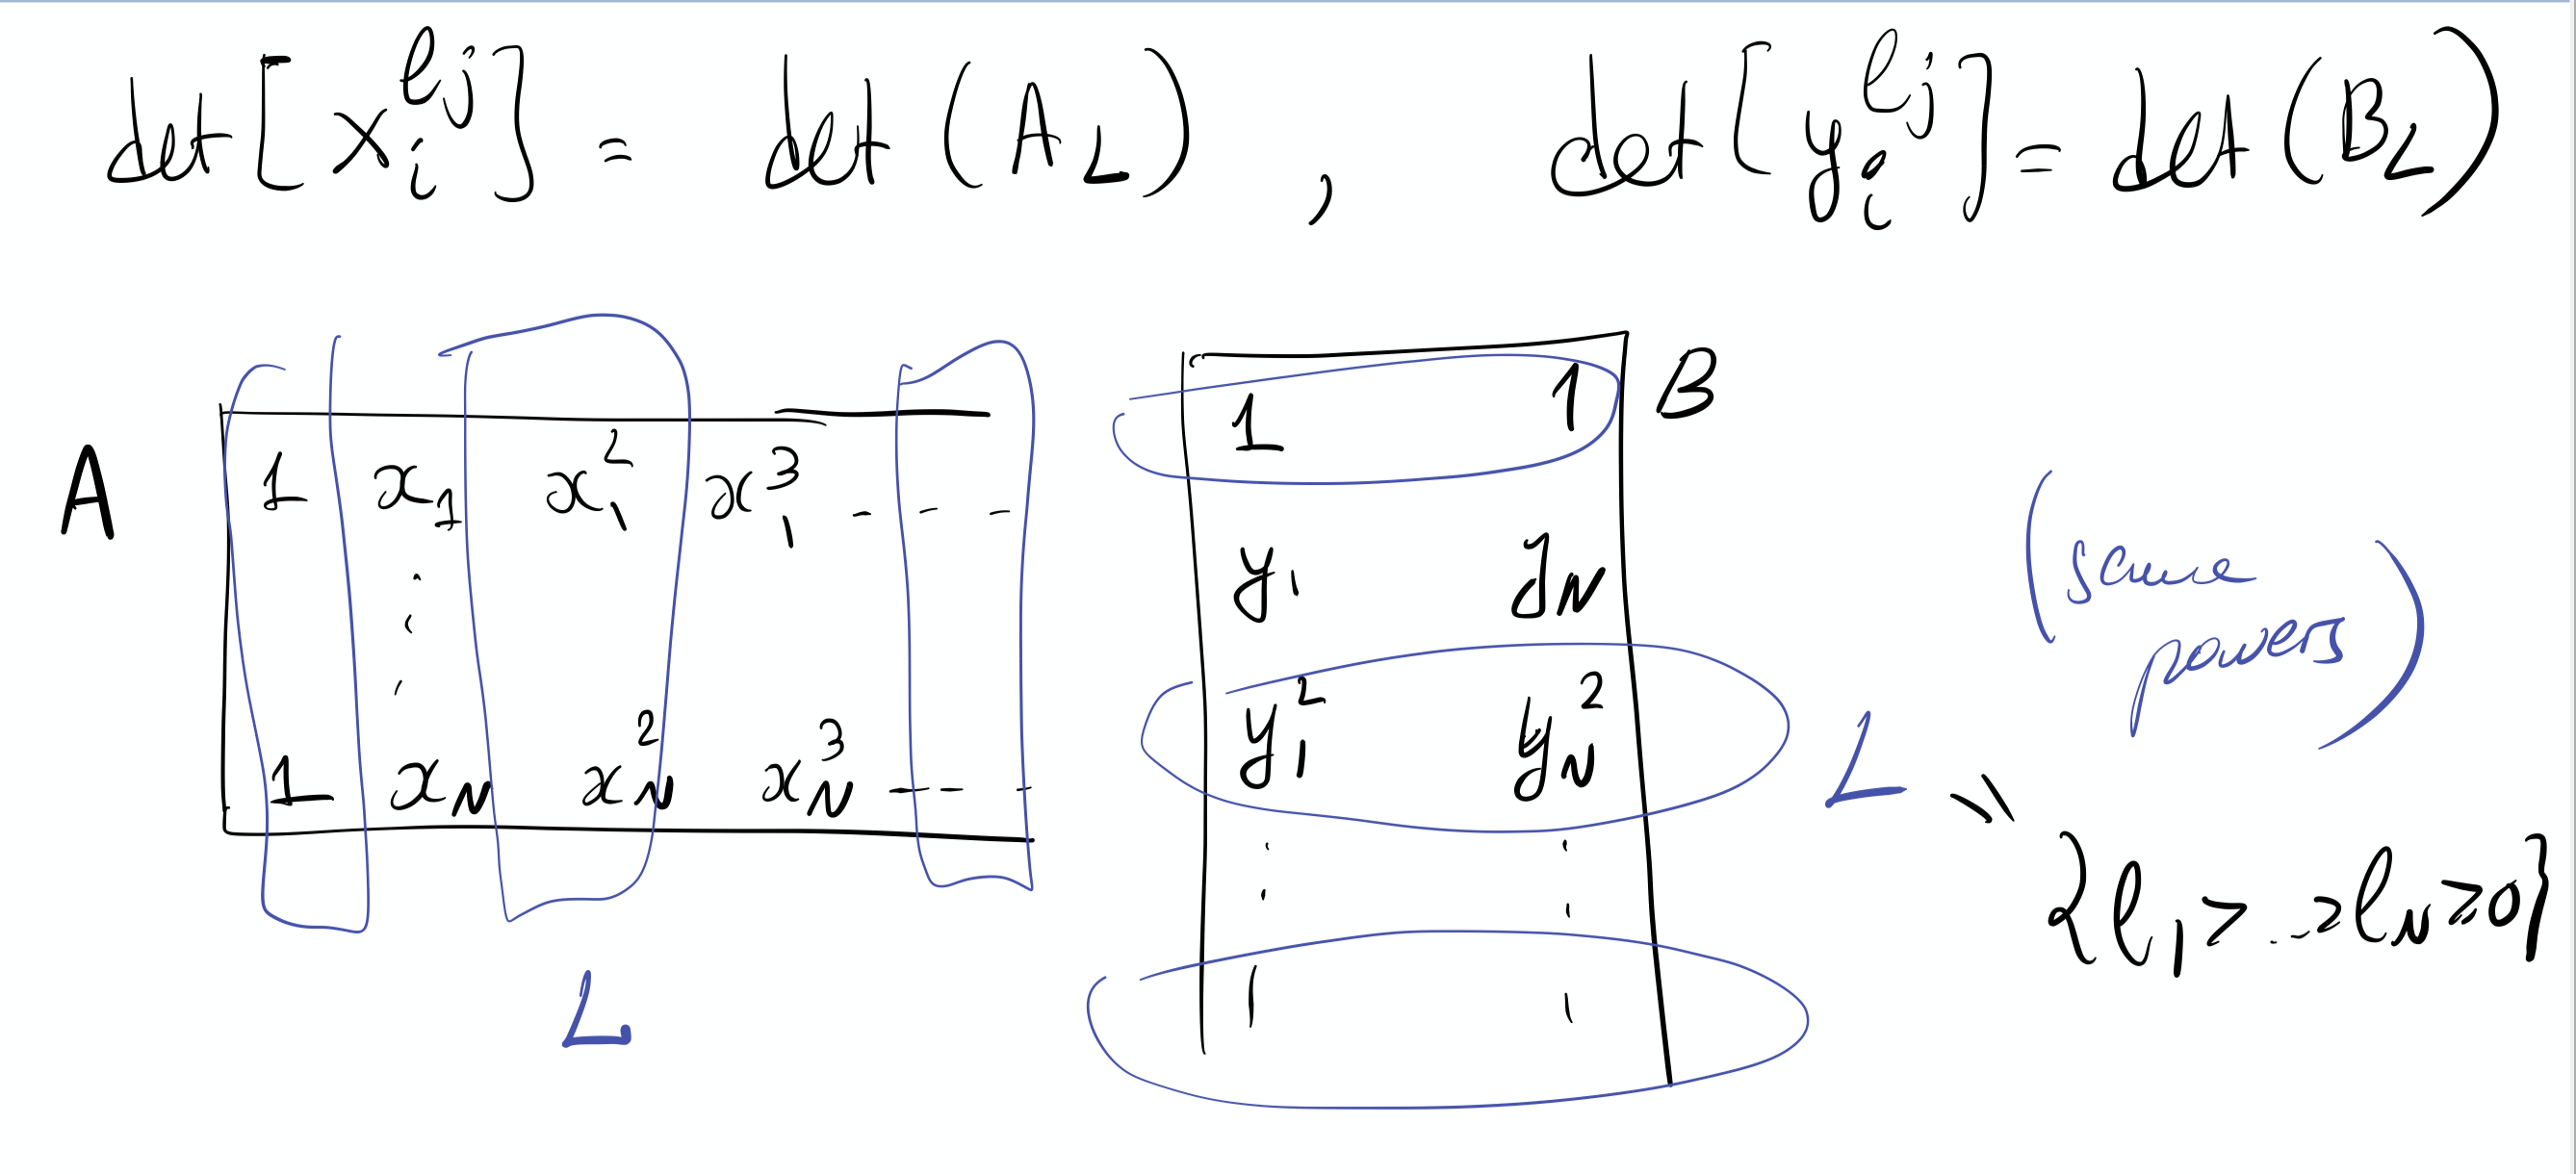 det[x_i^{ℓ_j}] = det(A_L) , det[y_i^{ℓ_j}] = det(B_L)
A
1 x_1 x_1^2 x_1^3 - - -
⋮
1 x_N x_N^2 x_N^3 - - -
L
B
1 1
y_1 y_N
y_1^2 y_N^2
⋮ ⋮
L
(same
powers)
=
{ℓ_1 > ... > ℓ_N ≥ 0}